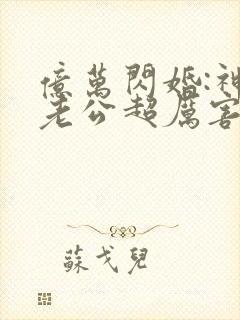 億萬閃婚:神
老公超厲害
蘇戈兒